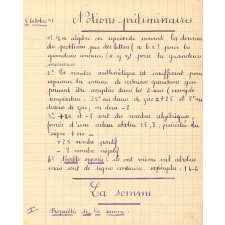 Notions préliminaires
1) En algèbre on représente souvent les données
du problème par des lettres (a b c) pour les
grandeurs connues, (x y z) pour les grandeurs
inconnues
2) Le nombre arithmétique est insuffisant pour
mesurer la valeur de certaines grandeurs que
peuvent être comptées dans 2 sens (exemple
température : 25° au dessus de zéro = +25 et 8° au
dessous de zéro, ou dira - 8
3) +25 et - 8 sont des nombres algébriques,
formés d'une valeur absolue 25, 8, précédée du
signe + ou -
+25 nombre positif
- 8 nombre négatif
4) Nombres opposés : ils ont même val. absolue
mais sont de signes contraires
La somme
I
Propriétés de la somme